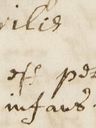 vilis
est per
infans